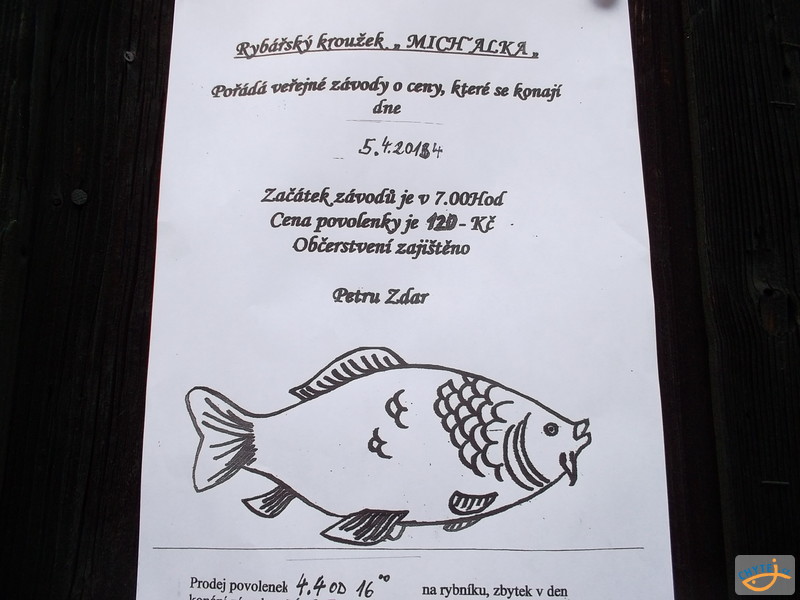 Rybářský kroužek „ MICHALKA „
Pořádá veřejné závody o ceny, které se konají
dne
5.4.2014
Začátek závodů je v 7.00Hod
Cena povolenky je 120 - Kč
Občerstvení zajištěno
Petru Zdar
Prodej povolenek 4.4 OD 16⁰⁰ na rybníku, zbytek v den